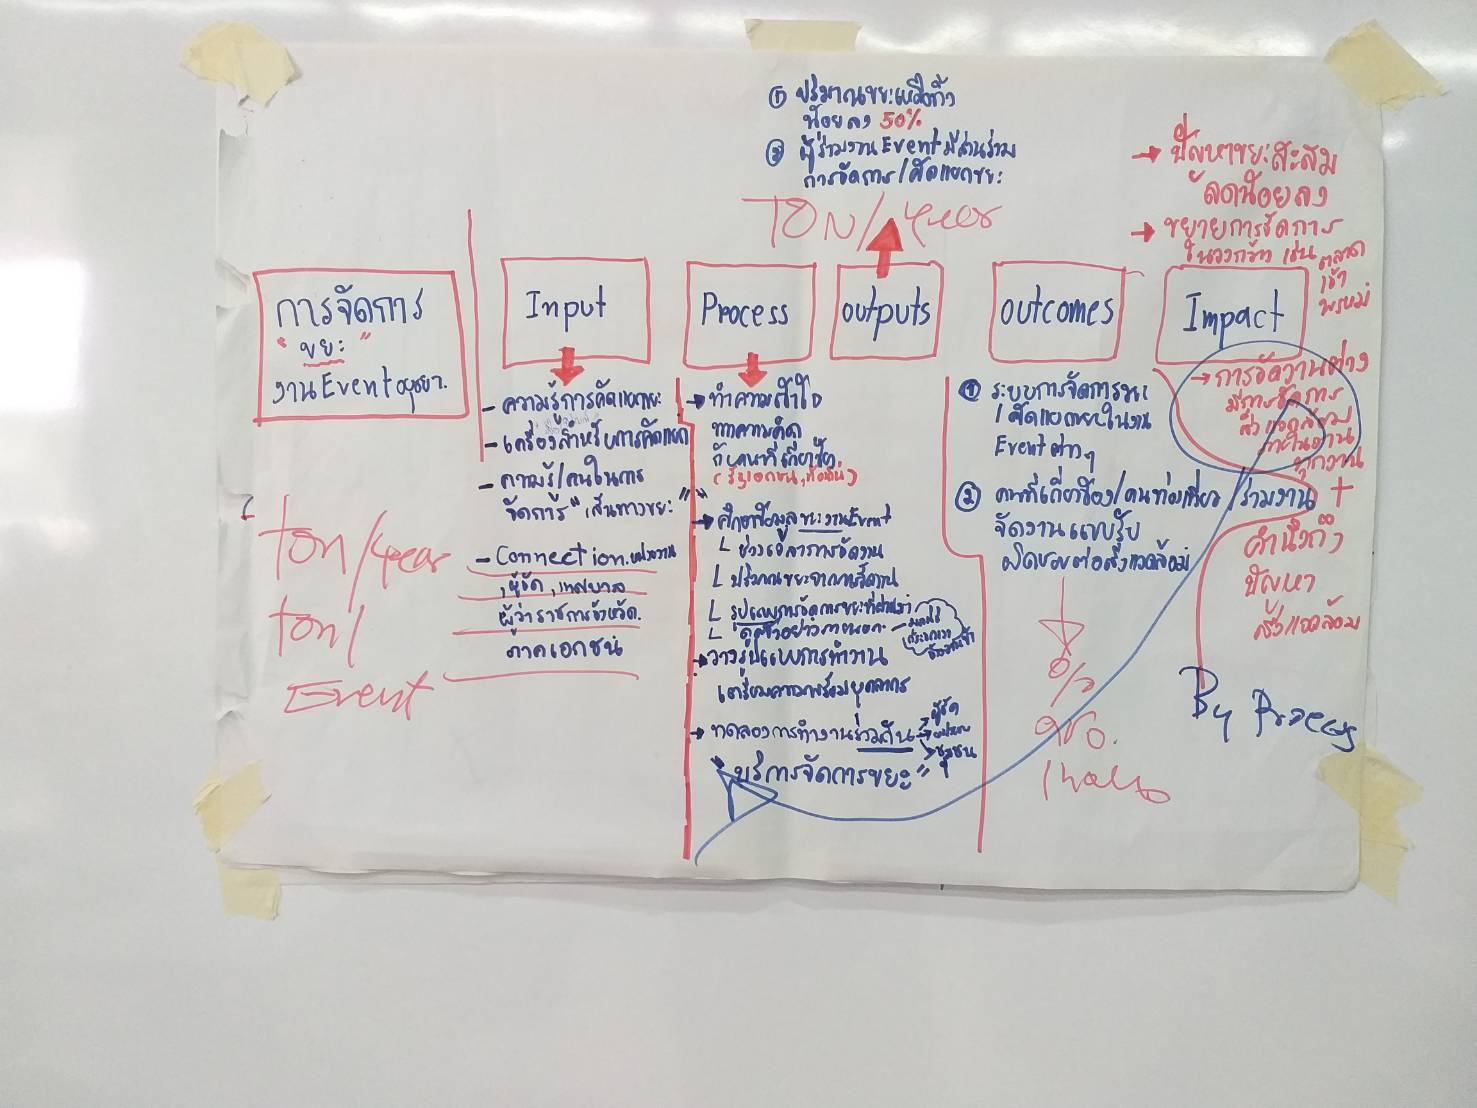 ① ปริมาณขยะเหลือทิ้ง
น้อยลง 50%
② ผู้ร่วมงาน Event มีส่วนร่วม
การจัดการ/คัดแยกขยะ
TON/year
→ ปัญหาขยะสะสม
ลดน้อยลง
→ ขยายการจัดการ
ในวงกว้าง เช่น ตลาด
เช้า
พรหม่
การจัดการ
"ขยะ"
งาน Event อยุธยา.
Input
Process
outputs
outcomes
Impact
- ความรู้การคัดแยกขยะ
- เครื่องสำหรับการคัดแยก
- ความรู้/คนในการ
จัดการ "เส้นทางขยะ"
- Connection
ผู้จัด, เทศบาล
ผู้ว่าราชการจังหวัด.
ภาคเอกชน
ton/year
ton/
Event
→ ทำความเข้าใจ
ทำความคิด
กับคนที่เกี่ยวข้อง
(รัฐ, เอกชน, ท้องถิ่น)
→ ศึกษาข้อมูลขยะงาน Event
└ ช่วงเวลาการจัดงาน
└ ปริมาณขยะจากการจัดงาน
└ รูปแบบการจัดการขยะที่ผ่านมา
└ ดูตัวอย่างภายนอก
→ วางรูปแบบการทำงาน
เตรียมความพร้อมบุคลากร
→ ทดลองการทำงานร่วมกัน → ผู้จัด
→ ชุมชน
"บริการจัดการขยะ"
① ระบบการจัดการขยะ
/คัดแยกขยะในงาน
Event ต่างๆ
② คนที่เกี่ยวข้อง/คนท่องเที่ยว/ร่วมงาน
จัดงานแบบรับ
ผิดชอบต่อสิ่งแวดล้อม
→ การจัดงานต่าง
มีการจัดการ
สิ่งแวดล้อม
ภายในงาน
ทุกงาน
+
คำนึงถึง
ปัญหา
สิ่งแวดล้อม
By Process